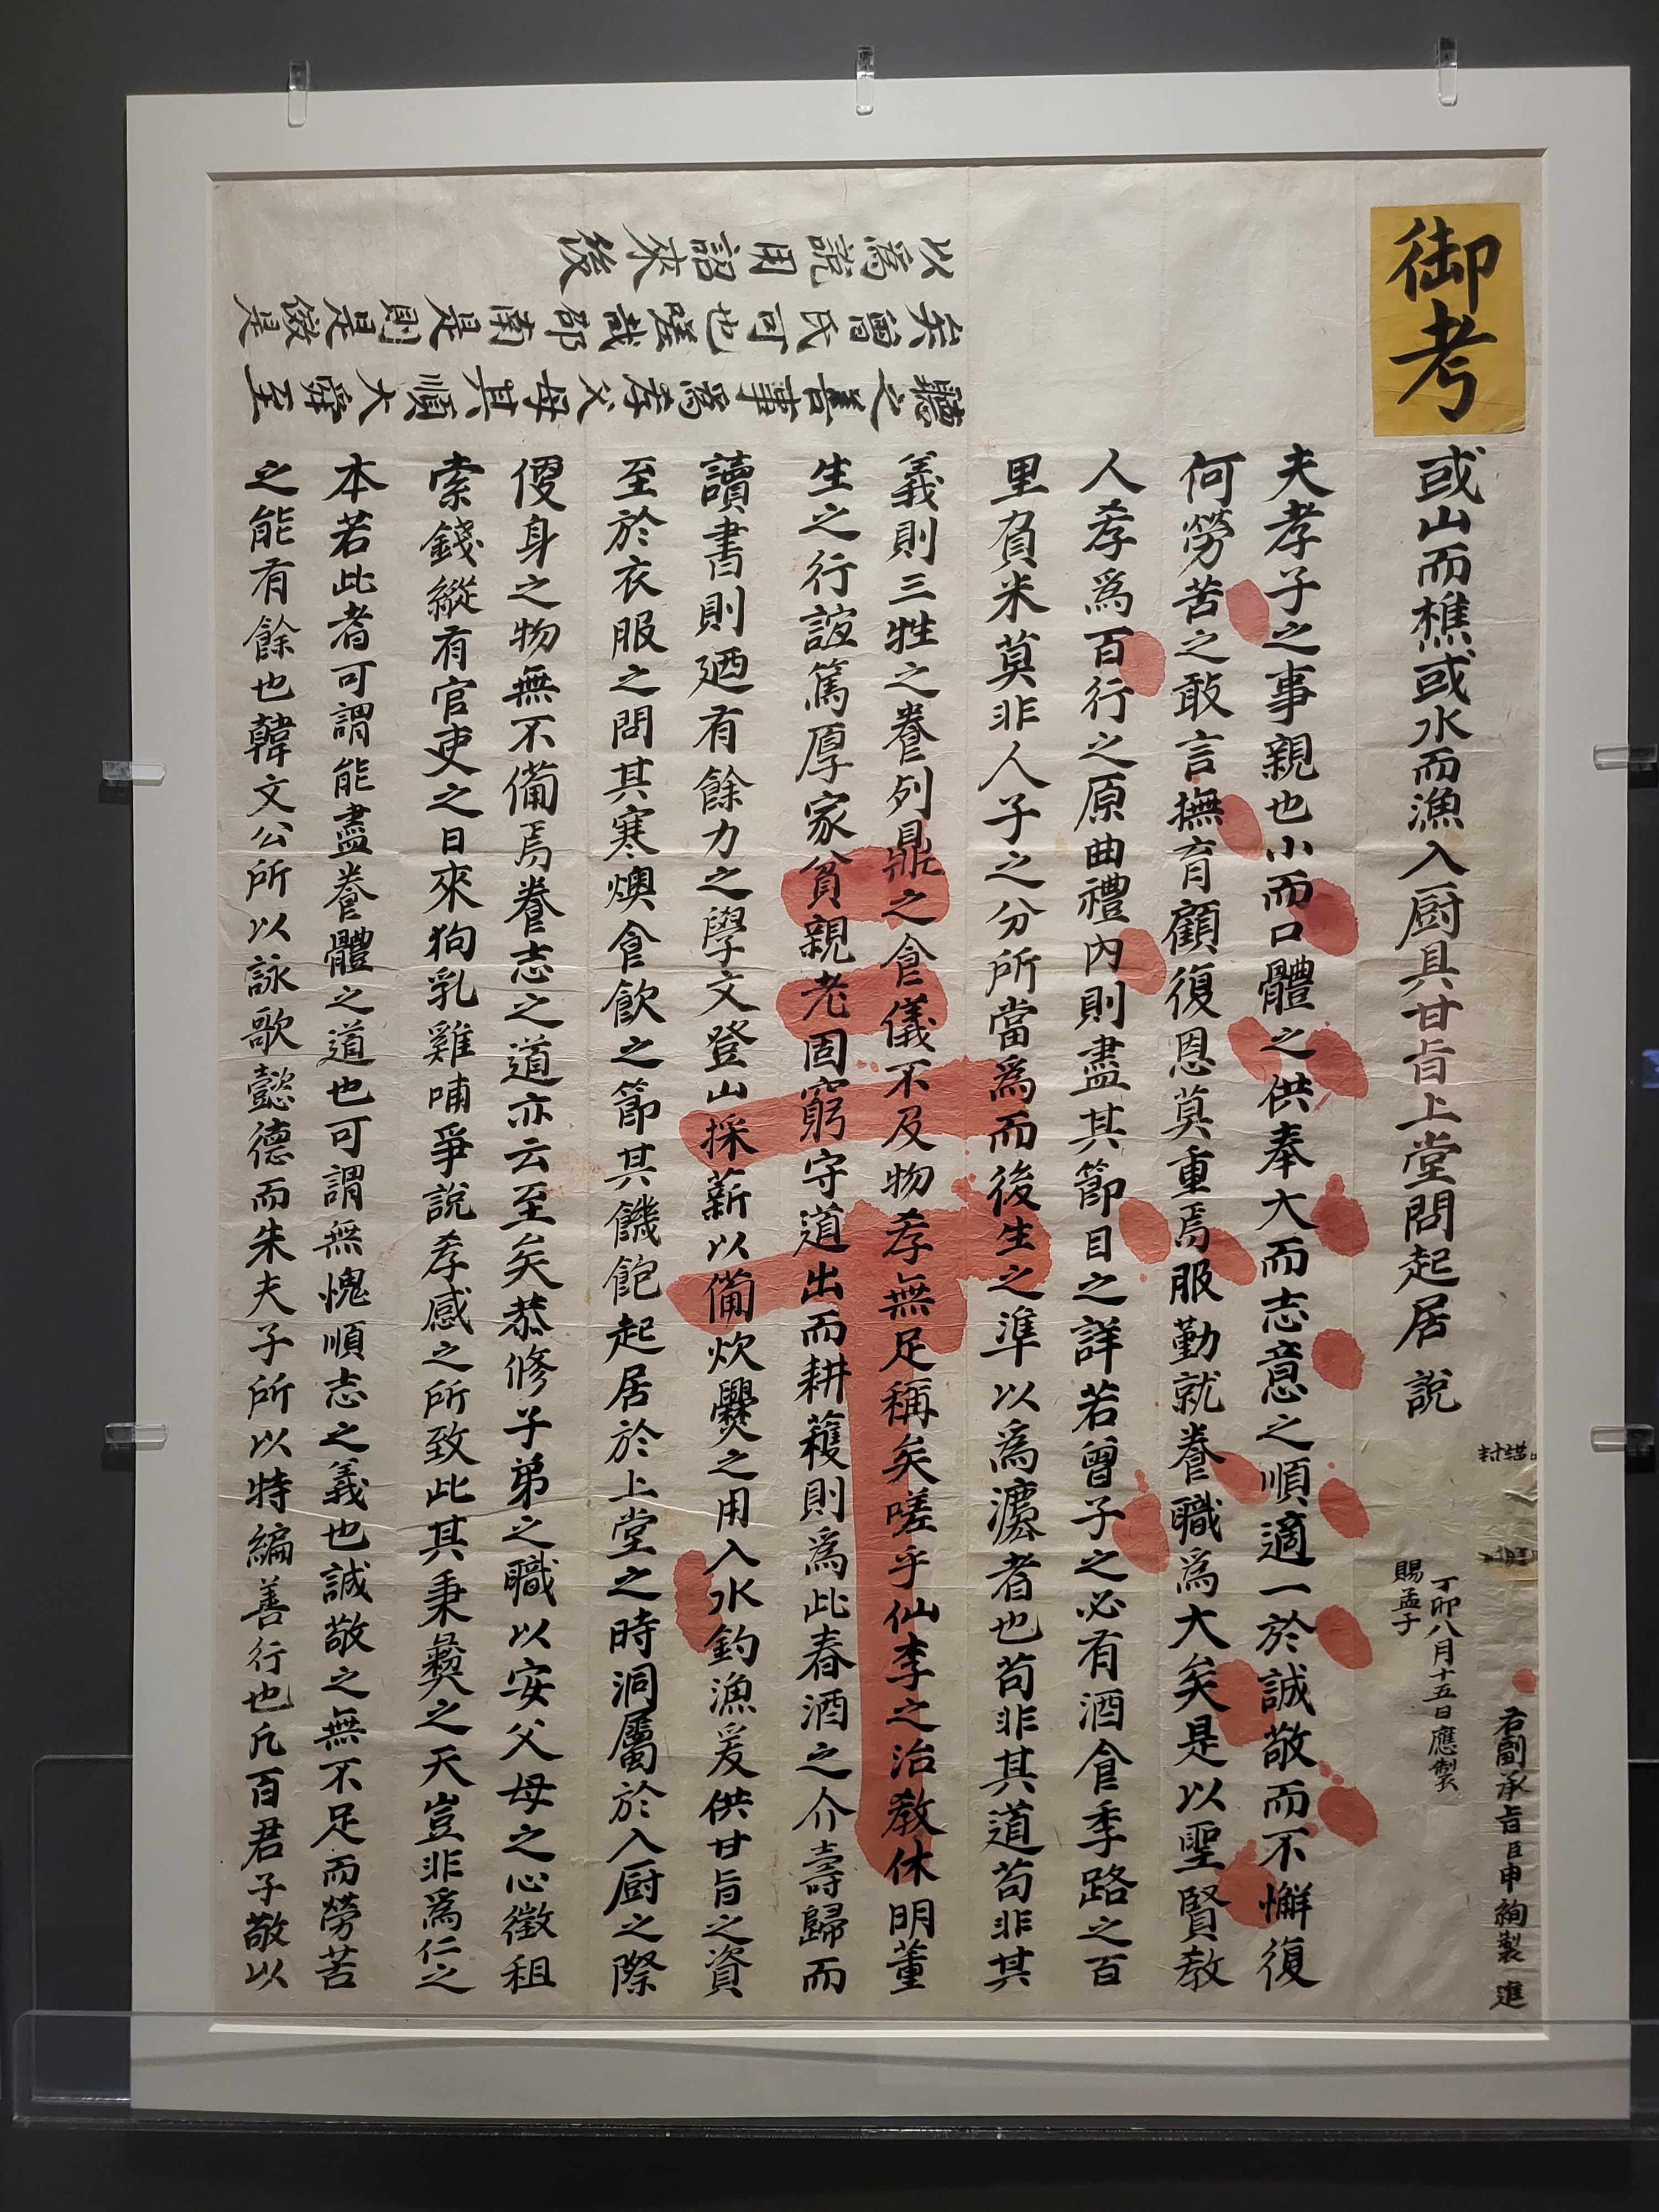 御考
或山而樵或水而漁入厨具甘旨上堂問起居 說
右副承旨臣申絢製 進
丁卯八月十五日應製
賜孟子
夫孝子之事親也小而口體之供奉大而志意之順適一於誠敬而不懈復
何勞苦之敢言撫育顧復恩莫重焉服勤就養職爲大矣是以聖賢教
人孝爲百行之原曲禮內則盡其節目之詳若曾子之必有酒食季路之百
里負米莫非人子之分所當爲而後生之準以爲瀌者也苟非其道苟非其
義則三牲之養列鼎之食儀不及物孝無足稱矣嗟乎仙李之治教休明董
生之行誼篤厚家貧親老固窮守道出而耕穫則爲此春酒之介壽歸而
讀書則廼有餘力之學文登山採薪以備炊爨之用入水釣漁爰供甘旨之資
至於衣服之問其寒燠食飮之節其饑飽起居於上堂之時洞屬於入厨之際
便身之物無不備焉養志之道亦云至矣恭修子弟之職以安父母之心徵租
索錢縱有官吏之日來狗乳雞哺爭說孝感之所致此其秉彛之天豈非爲仁之
本若此者可謂能盡養體之道也可謂無愧順志之義也誠敬之無不足而勞苦
之能有餘也韓文公所以詠歌懿德而朱夫子所以特編善行也凡百君子敬以
聽之善事爲孝父母其順大舜至
矣曾氏可也嗟哉邵南是則是儆是
以爲說用詔來後